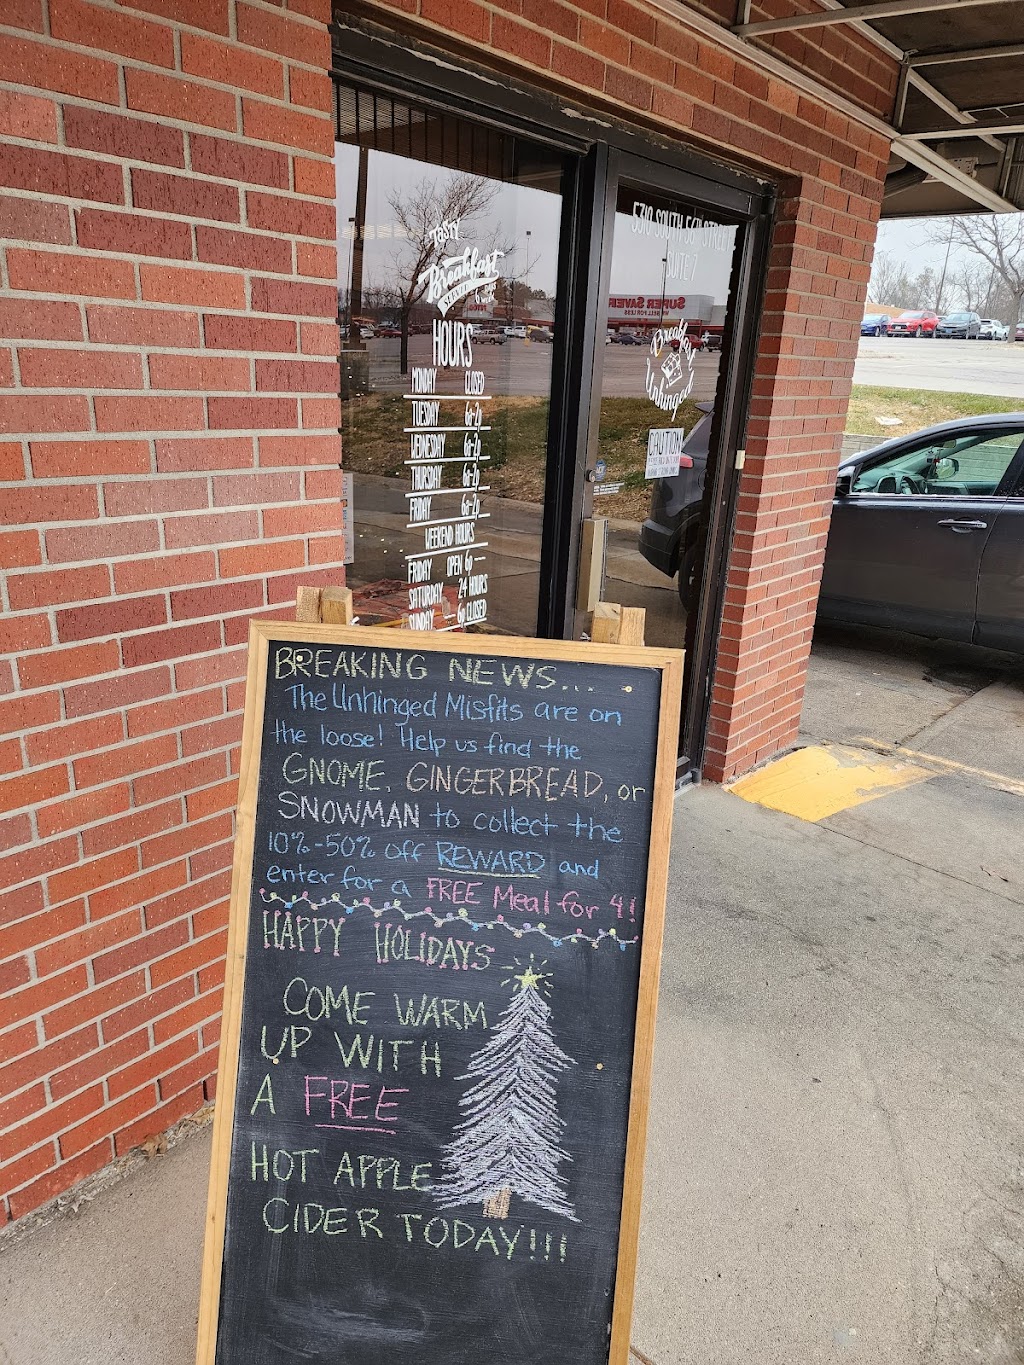 Tasty
Breakfast
HOURS
MONDAY CLOSED
TUESDAY 6a-2p
WEDNESDAY 6a-2p
THURSDAY 6a-2p
FRIDAY 6a-2p
WEEKEND HOURS
FRIDAY OPEN 6p —
SATURDAY 24 HOURS
SUNDAY 6p CLOSED
5310 SOUTH 56TH STREET
SUITE 7
SUPER SAVER
Breakfast
Unhinged
CAUTION
BREAKING NEWS...
The Unhinged Misfits are on
the loose! Help us find the
GNOME, GINGERBREAD, or
SNOWMAN to collect the
10%-50% off REWARD and
enter for a FREE Meal for 4!
HAPPY HOLIDAYS
COME WARM
UP WITH
A FREE
HOT APPLE
CIDER TODAY!!!